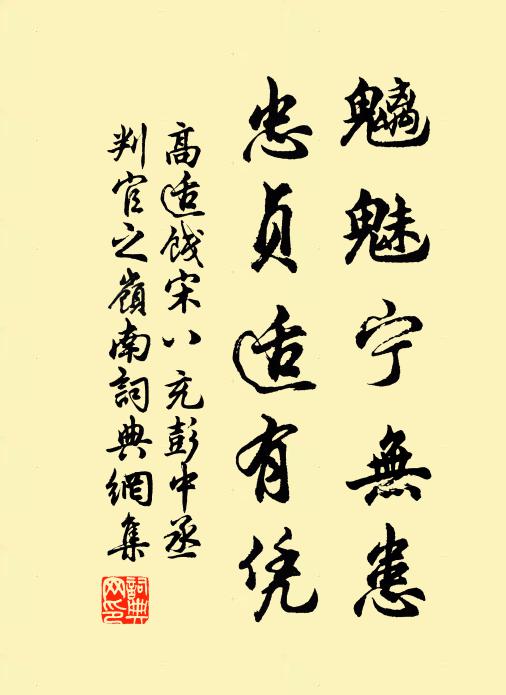 魑魅宁無患
忠貞适有凭
高适餞宋八充彭中丞
判官之嶺南詞典網集
詞典网印